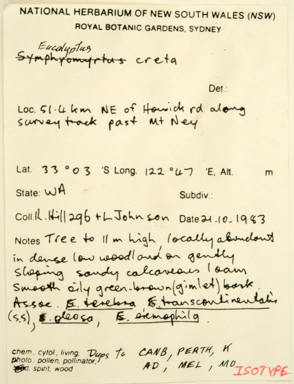 NATIONAL HERBARIUM OF NEW SOUTH WALES (NSW)
ROYAL BOTANIC GARDENS, SYDNEY
Eucalyptus
Symphyomyrtus creta
Det.:
Loc. 51.4 km NE of Howick rd along
survey track past Mt Ney
Lat. 33° 03 'S Long. 122° 47 'E, Alt. m
State: WA Subdiv.:
Coll. K. Hill 296 + L Johnson Date 21.10.1983
Notes Tree to 11 m high, locally abundant
in dense low woodland on gently
sloping sandy calcareous loam
Smooth oily green-brown (gimlet) bark
Assoc. E. terebra E. transcontinentalis
(s.s), E. oleosa, E. eremophila
chem., cytol., living, Dups to CANB, PERTH, K
photo, pollen, pollinator, AD, MEL, MO
spirit, wood
ISOTYPE